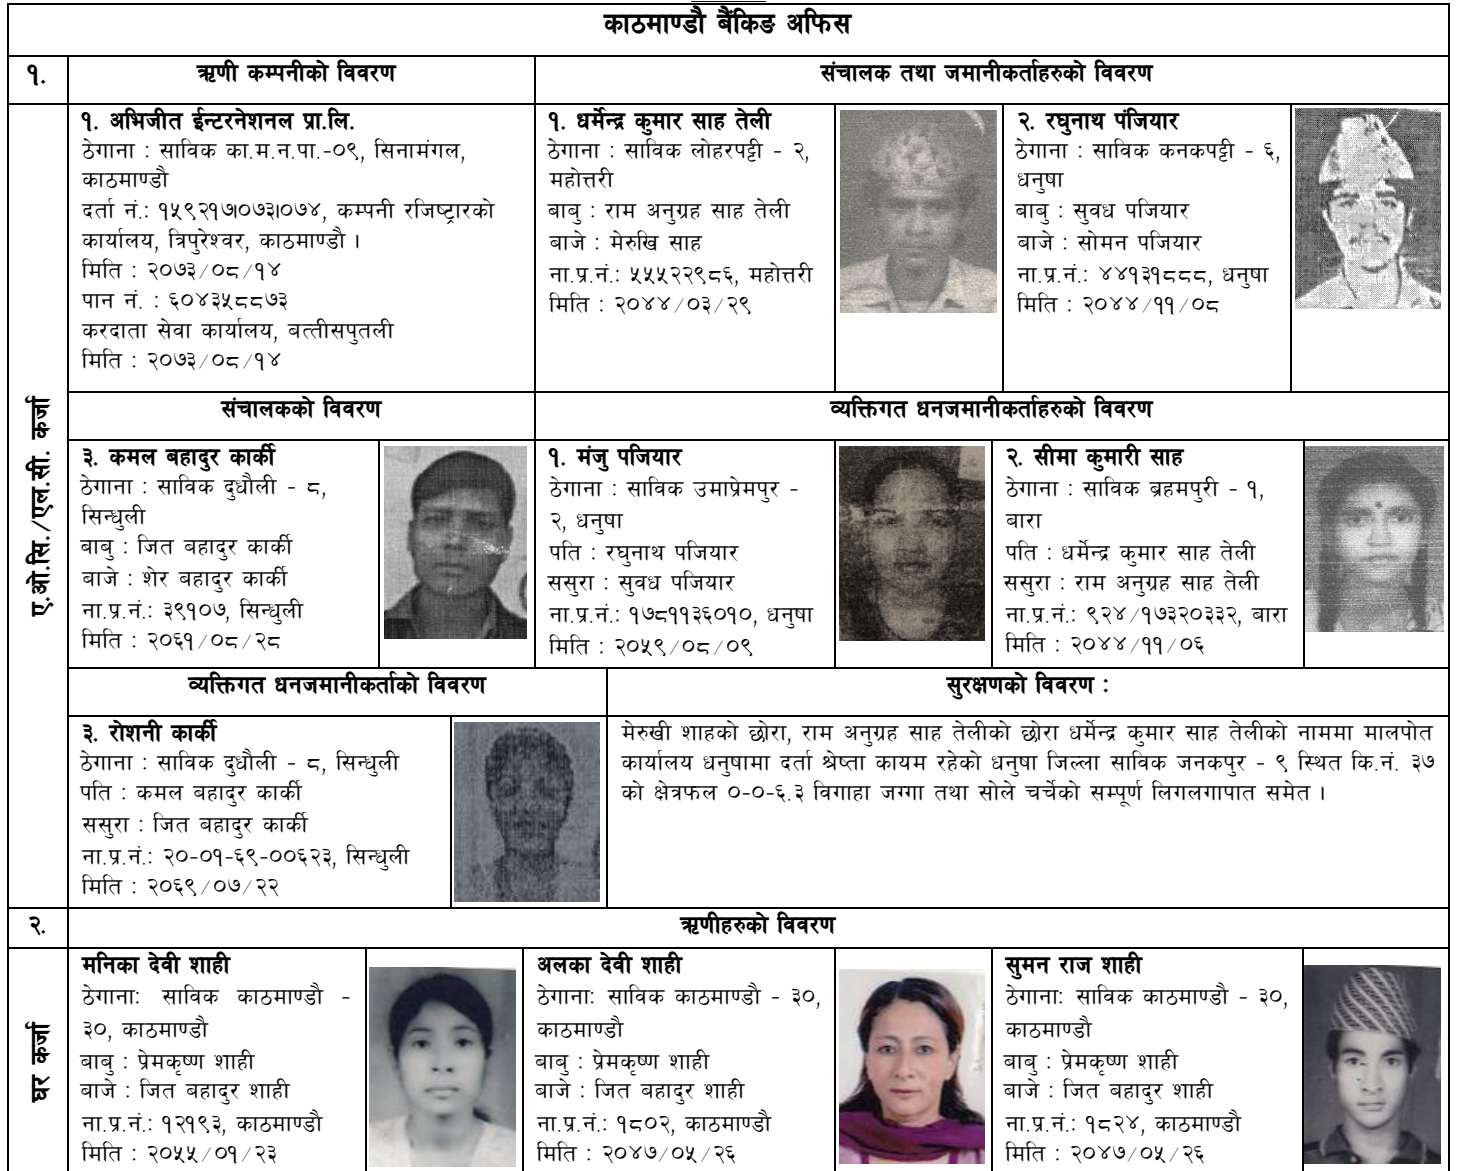 काठमाण्डौ बैंकिङ अफिस
१.
ऋणी कम्पनीको विवरण
संचालक तथा जमानीकर्ताहरुको विवरण
ए.ओ.सि./एल.सी. कर्जा
१. अभिजीत ईन्टरनेशनल प्रा.लि.
ठेगाना : साविक का.म.न.पा.-०९, सिनामंगल,
काठमाण्डौ
दर्ता नं.: १५९२१७।०७३।०७४, कम्पनी रजिष्ट्रारको
कार्यालय, त्रिपुरेश्वर, काठमाण्डौ ।
मिति : २०७३/०८/१४
पान नं. : ६०४३५८८७३
करदाता सेवा कार्यालय, बत्तीसपुतली
मिति : २०७३/०८/१४
१. धर्मेन्द्र कुमार साह तेली
ठेगाना : साविक लोहरपट्टी - २,
महोत्तरी
बाबु : राम अनुग्रह साह तेली
बाजे : मेरुखि साह
ना.प्र.नं.: ५५५२२९८६, महोत्तरी
मिति : २०४४/०३/२९
२. रघुनाथ पंजियार
ठेगाना : साविक कनकपट्टी - ६,
धनुषा
बाबु : सुवध पजियार
बाजे : सोमन पजियार
ना.प्र.नं.: ४४१३१८८८, धनुषा
मिति : २०४४/११/०८
संचालकको विवरण
व्यक्तिगत धनजमानीकर्ताहरुको विवरण
३. कमल बहादुर कार्की
ठेगाना : साविक दुधौली - ८,
सिन्धुली
बाबु : जित बहादुर कार्की
बाजे : शेर बहादुर कार्की
ना.प्र.नं.: ३९१०७, सिन्धुली
मिति : २०६१/०८/२८
१. मंजु पजियार
ठेगाना : साविक उमाप्रेमपुर -
२, धनुषा
पति : रघुनाथ पजियार
ससुरा : सुवध पजियार
ना.प्र.नं.: १७८११३६०१०, धनुषा
मिति : २०५९/०८/०९
२. सीमा कुमारी साह
ठेगाना : साविक ब्रहमपुरी - १,
बारा
पति : धर्मेन्द्र कुमार साह तेली
ससुरा : राम अनुग्रह साह तेली
ना.प्र.नं.: ९२४/१७३२०३३२, बारा
मिति : २०४४/११/०६
व्यक्तिगत धनजमानीकर्ताको विवरण
सुरक्षणको विवरण :
३. रोशनी कार्की
ठेगाना : साविक दुधौली - ८, सिन्धुली
पति : कमल बहादुर कार्की
ससुरा : जित बहादुर कार्की
ना.प्र.नं.: २०-०१-६९-००६२३, सिन्धुली
मिति : २०६९/०७/२२
मेरुखी शाहको छोरा, राम अनुग्रह साह तेलीको छोरा धर्मेन्द्र कुमार साह तेलीको नाममा मालपोत
कार्यालय धनुषामा दर्ता श्रेष्ता कायम रहेको धनुषा जिल्ला साविक जनकपुर - ९ स्थित कि.नं. ३७
को क्षेत्रफल ०-०-६.३ विगाहा जग्गा तथा सोले चर्चेको सम्पूर्ण लिगलगापात समेत ।
२.
ऋणीहरुको विवरण
घर कर्जा
मनिका देवी शाही
ठेगाना: साविक काठमाण्डौ -
३०, काठमाण्डौ
बाबु : प्रेमकृष्ण शाही
बाजे : जित बहादुर शाही
ना.प्र.नं.: १२१९३, काठमाण्डौ
मिति : २०५५/०१/२३
अलका देवी शाही
ठेगाना: साविक काठमाण्डौ - ३०,
काठमाण्डौ
बाबु : प्रेमकृष्ण शाही
बाजे : जित बहादुर शाही
ना.प्र.नं.: १८०२, काठमाण्डौ
मिति : २०४७/०५/२६
सुमन राज शाही
ठेगाना: साविक काठमाण्डौ - ३०,
काठमाण्डौ
बाबु : प्रेमकृष्ण शाही
बाजे : जित बहादुर शाही
ना.प्र.नं.: १८२४, काठमाण्डौ
मिति : २०४७/०५/२६